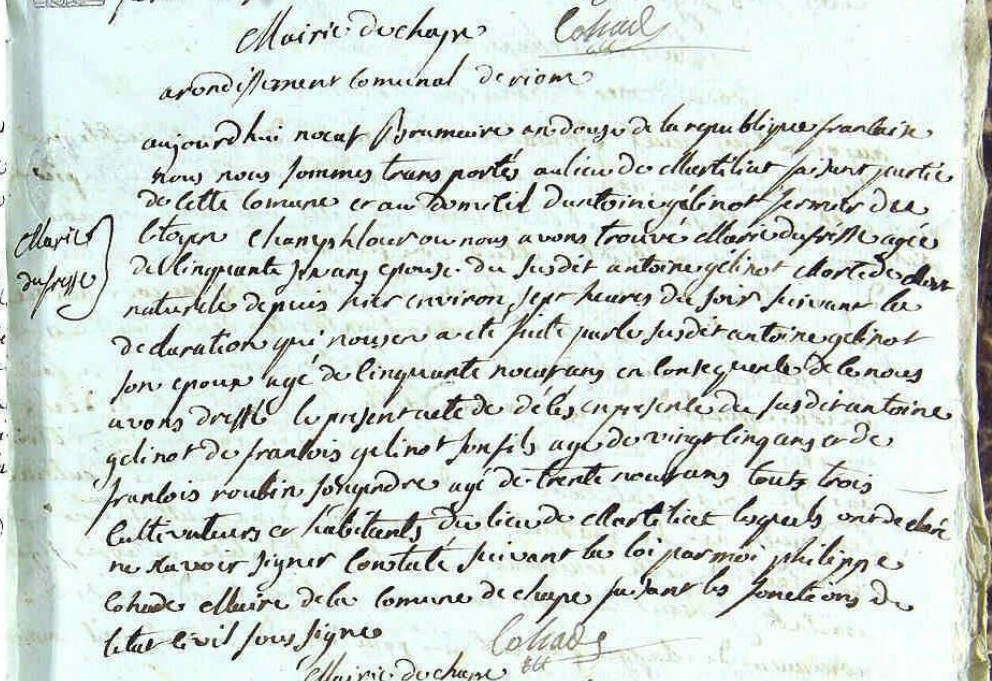 Mairie de chape Cohade
arondissement comunal de riom
aujourdhui neuf Brumaire an douze de la republique francaise
nous nous sommes transportés au lieu de Martiliat faisant partie
de cette comune et au Domicil Dantoine gelinot fermier du
Citoyen Champflour ou nous avons trouvé Marie dufresse agée
Marie
dufresse
de cinquante ans epouse du susdit antoine gelinot Morte de Mort
naturele depuis hier environ sept heures du soir suivant la
declaration qui nous en a eté faite par le susdit antoine gelinot
son epoux agé de cinquante neuf ans en consequence de ce nous
avons dressé le present acte de décès en presence du susdit antoine
gelinot de francois gelinot son fils age de vingt cinq ans et de
francois roubin son gendre agé de trente neuf ans touts trois
Cultivateurs et habitants du lieu de Martiliat lesquels ont declaré
ne savoir signer Constaté suivant la loi par moi philippe
Cohade Maire de la comune de chape faisant les fonctions de
letat civil sous signe
Cohade
Mairie de chape